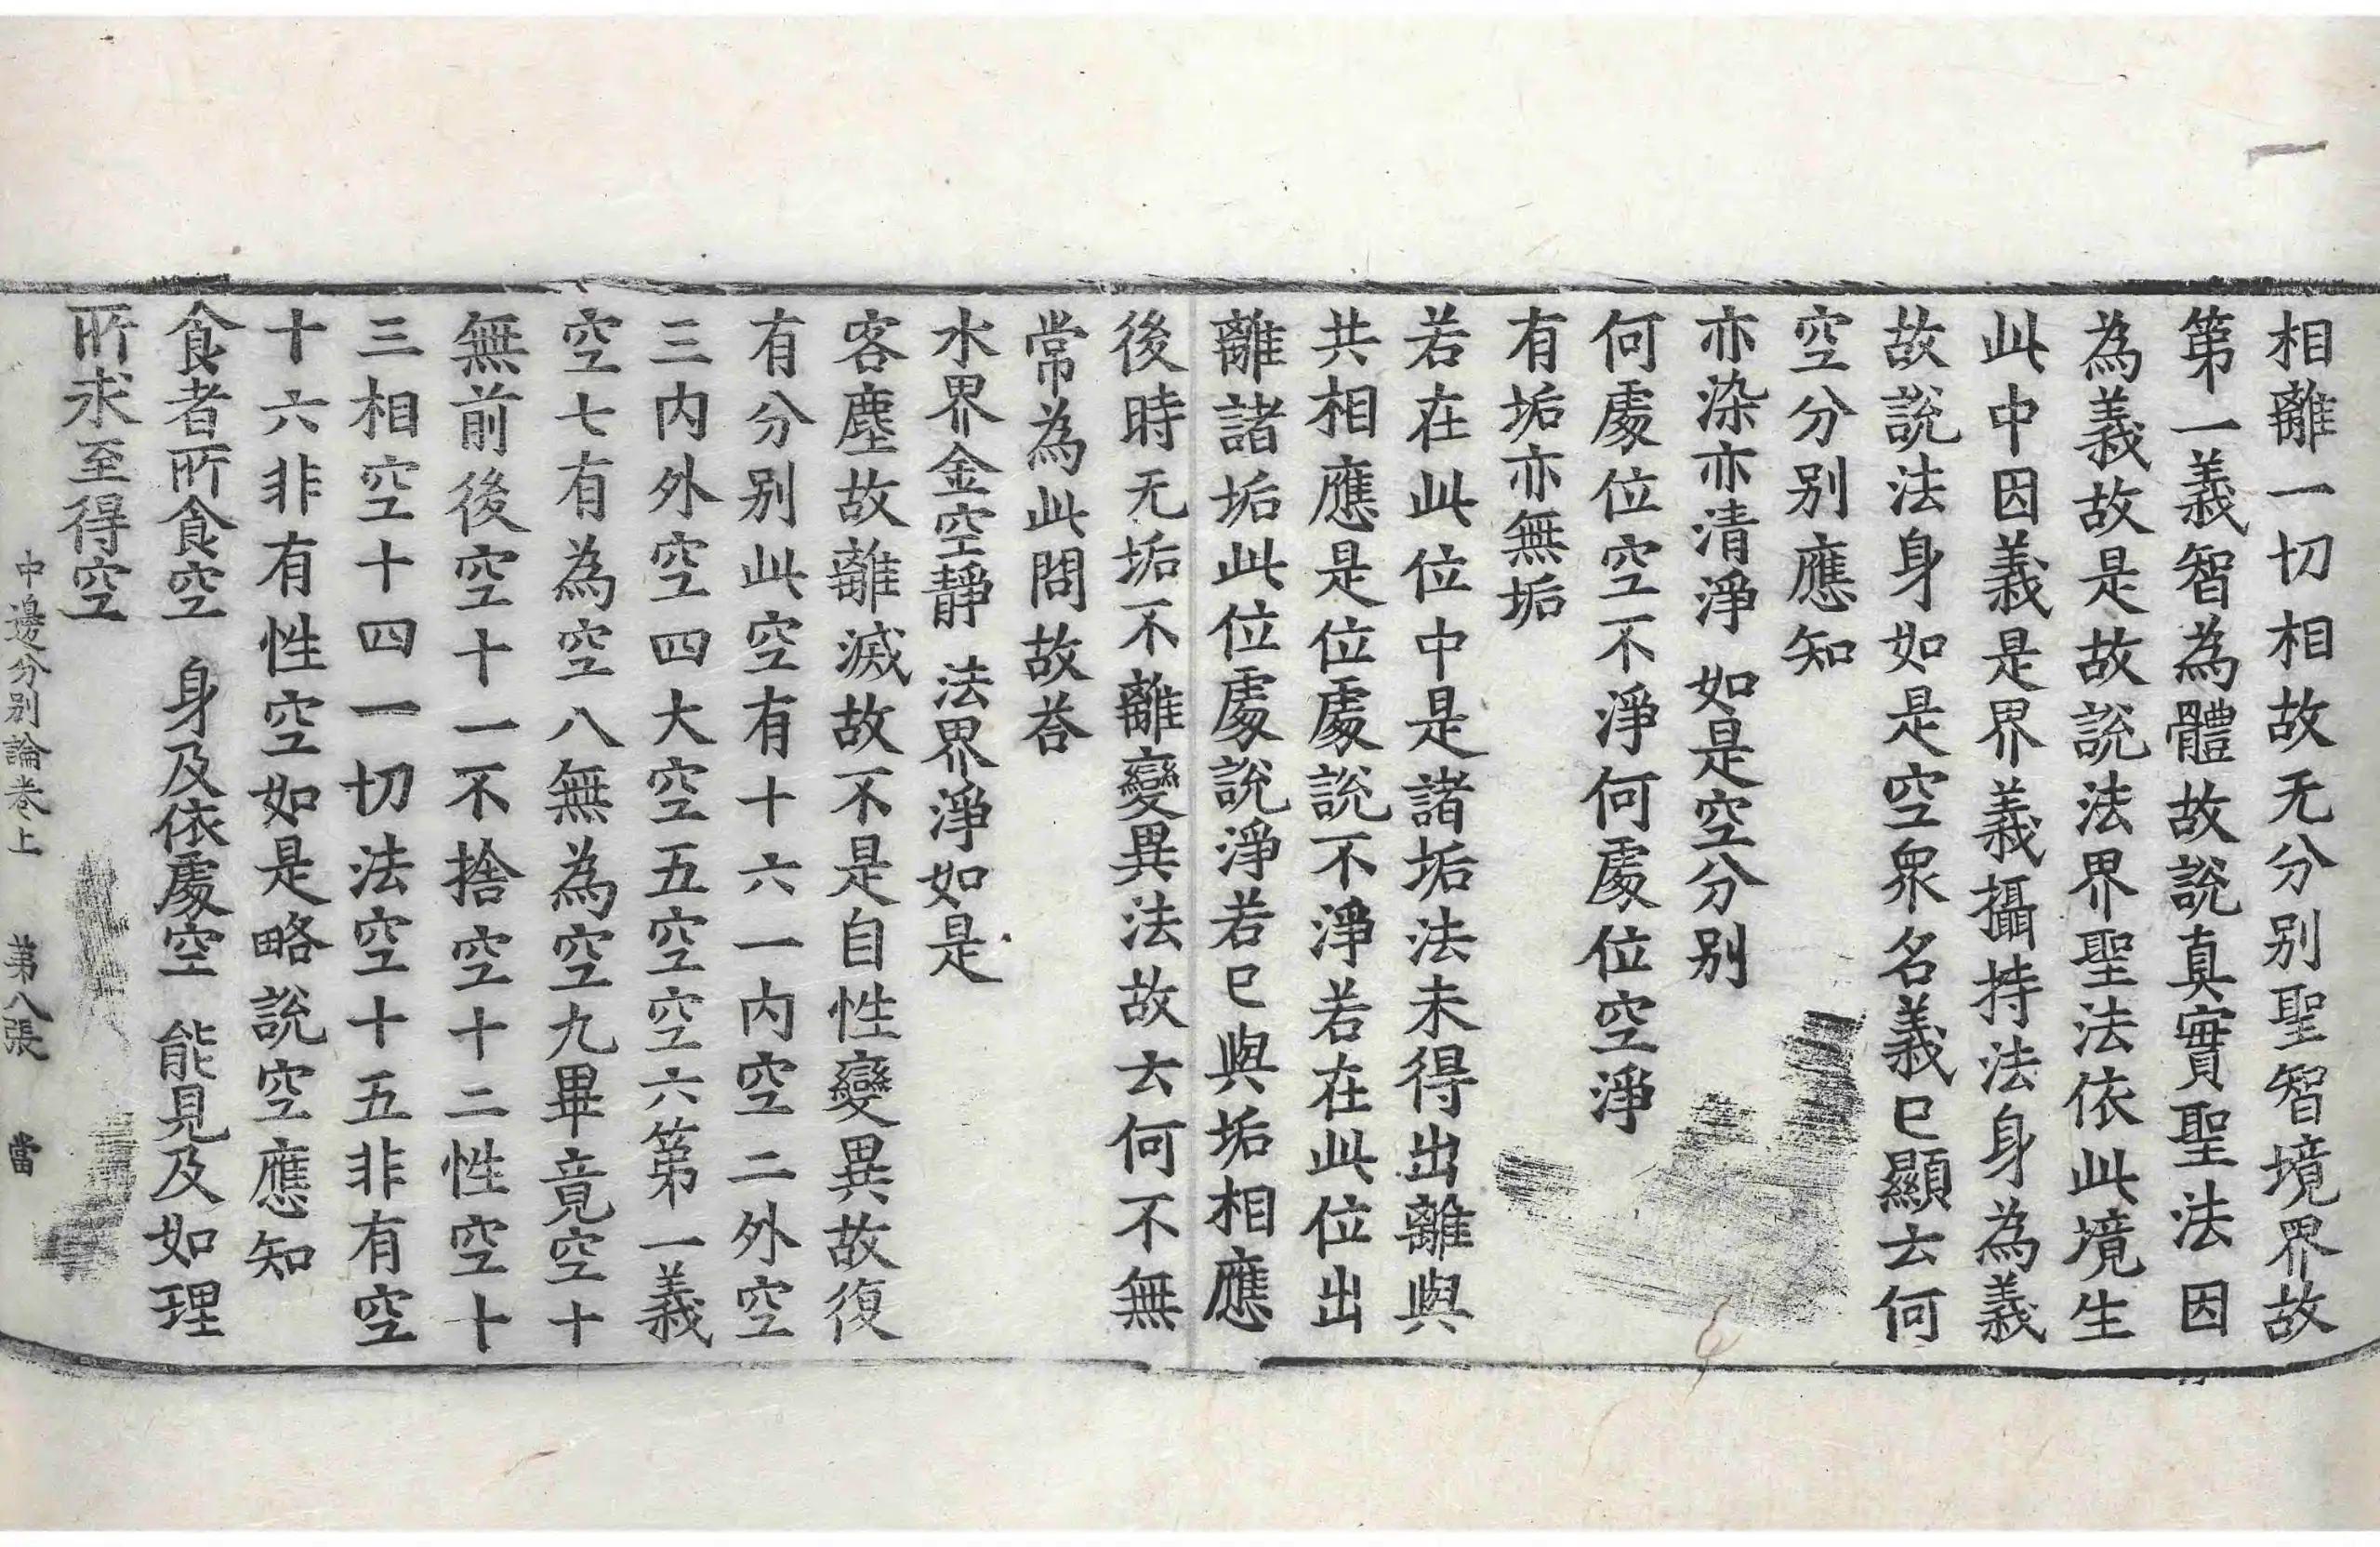 相離一切相故无分别聖智境界故
第一義智為體故說真實聖法因
為義故是故說法界聖法依此境生
此中因義是界義攝持法身為義
故說法身如是空眾名義已顯云何
空分别應知
亦染亦清淨 如是空分别
何處位空不淨何處位空淨
有垢亦無垢
若在此位中是諸垢法未得出離與
共相應是位處說不淨若在此位出
離諸垢此位處說淨若已與垢相應
後時无垢不離變異法故云何不無
常為此問故荅
水界金空靜 法界淨如是
客塵故離滅故不是自性變異故復
有分别此空有十六一内空二外空
三内外空四大空五空空六第一義
空七有為空八無為空九畢竟空十
無前後空十一不捨空十二性空十
三相空十四一切法空十五非有空
十六非有性空如是略說空應知
食者所食空 身及依處空 能見及如理
所求至得空
中邊分别論卷上 第八張 當